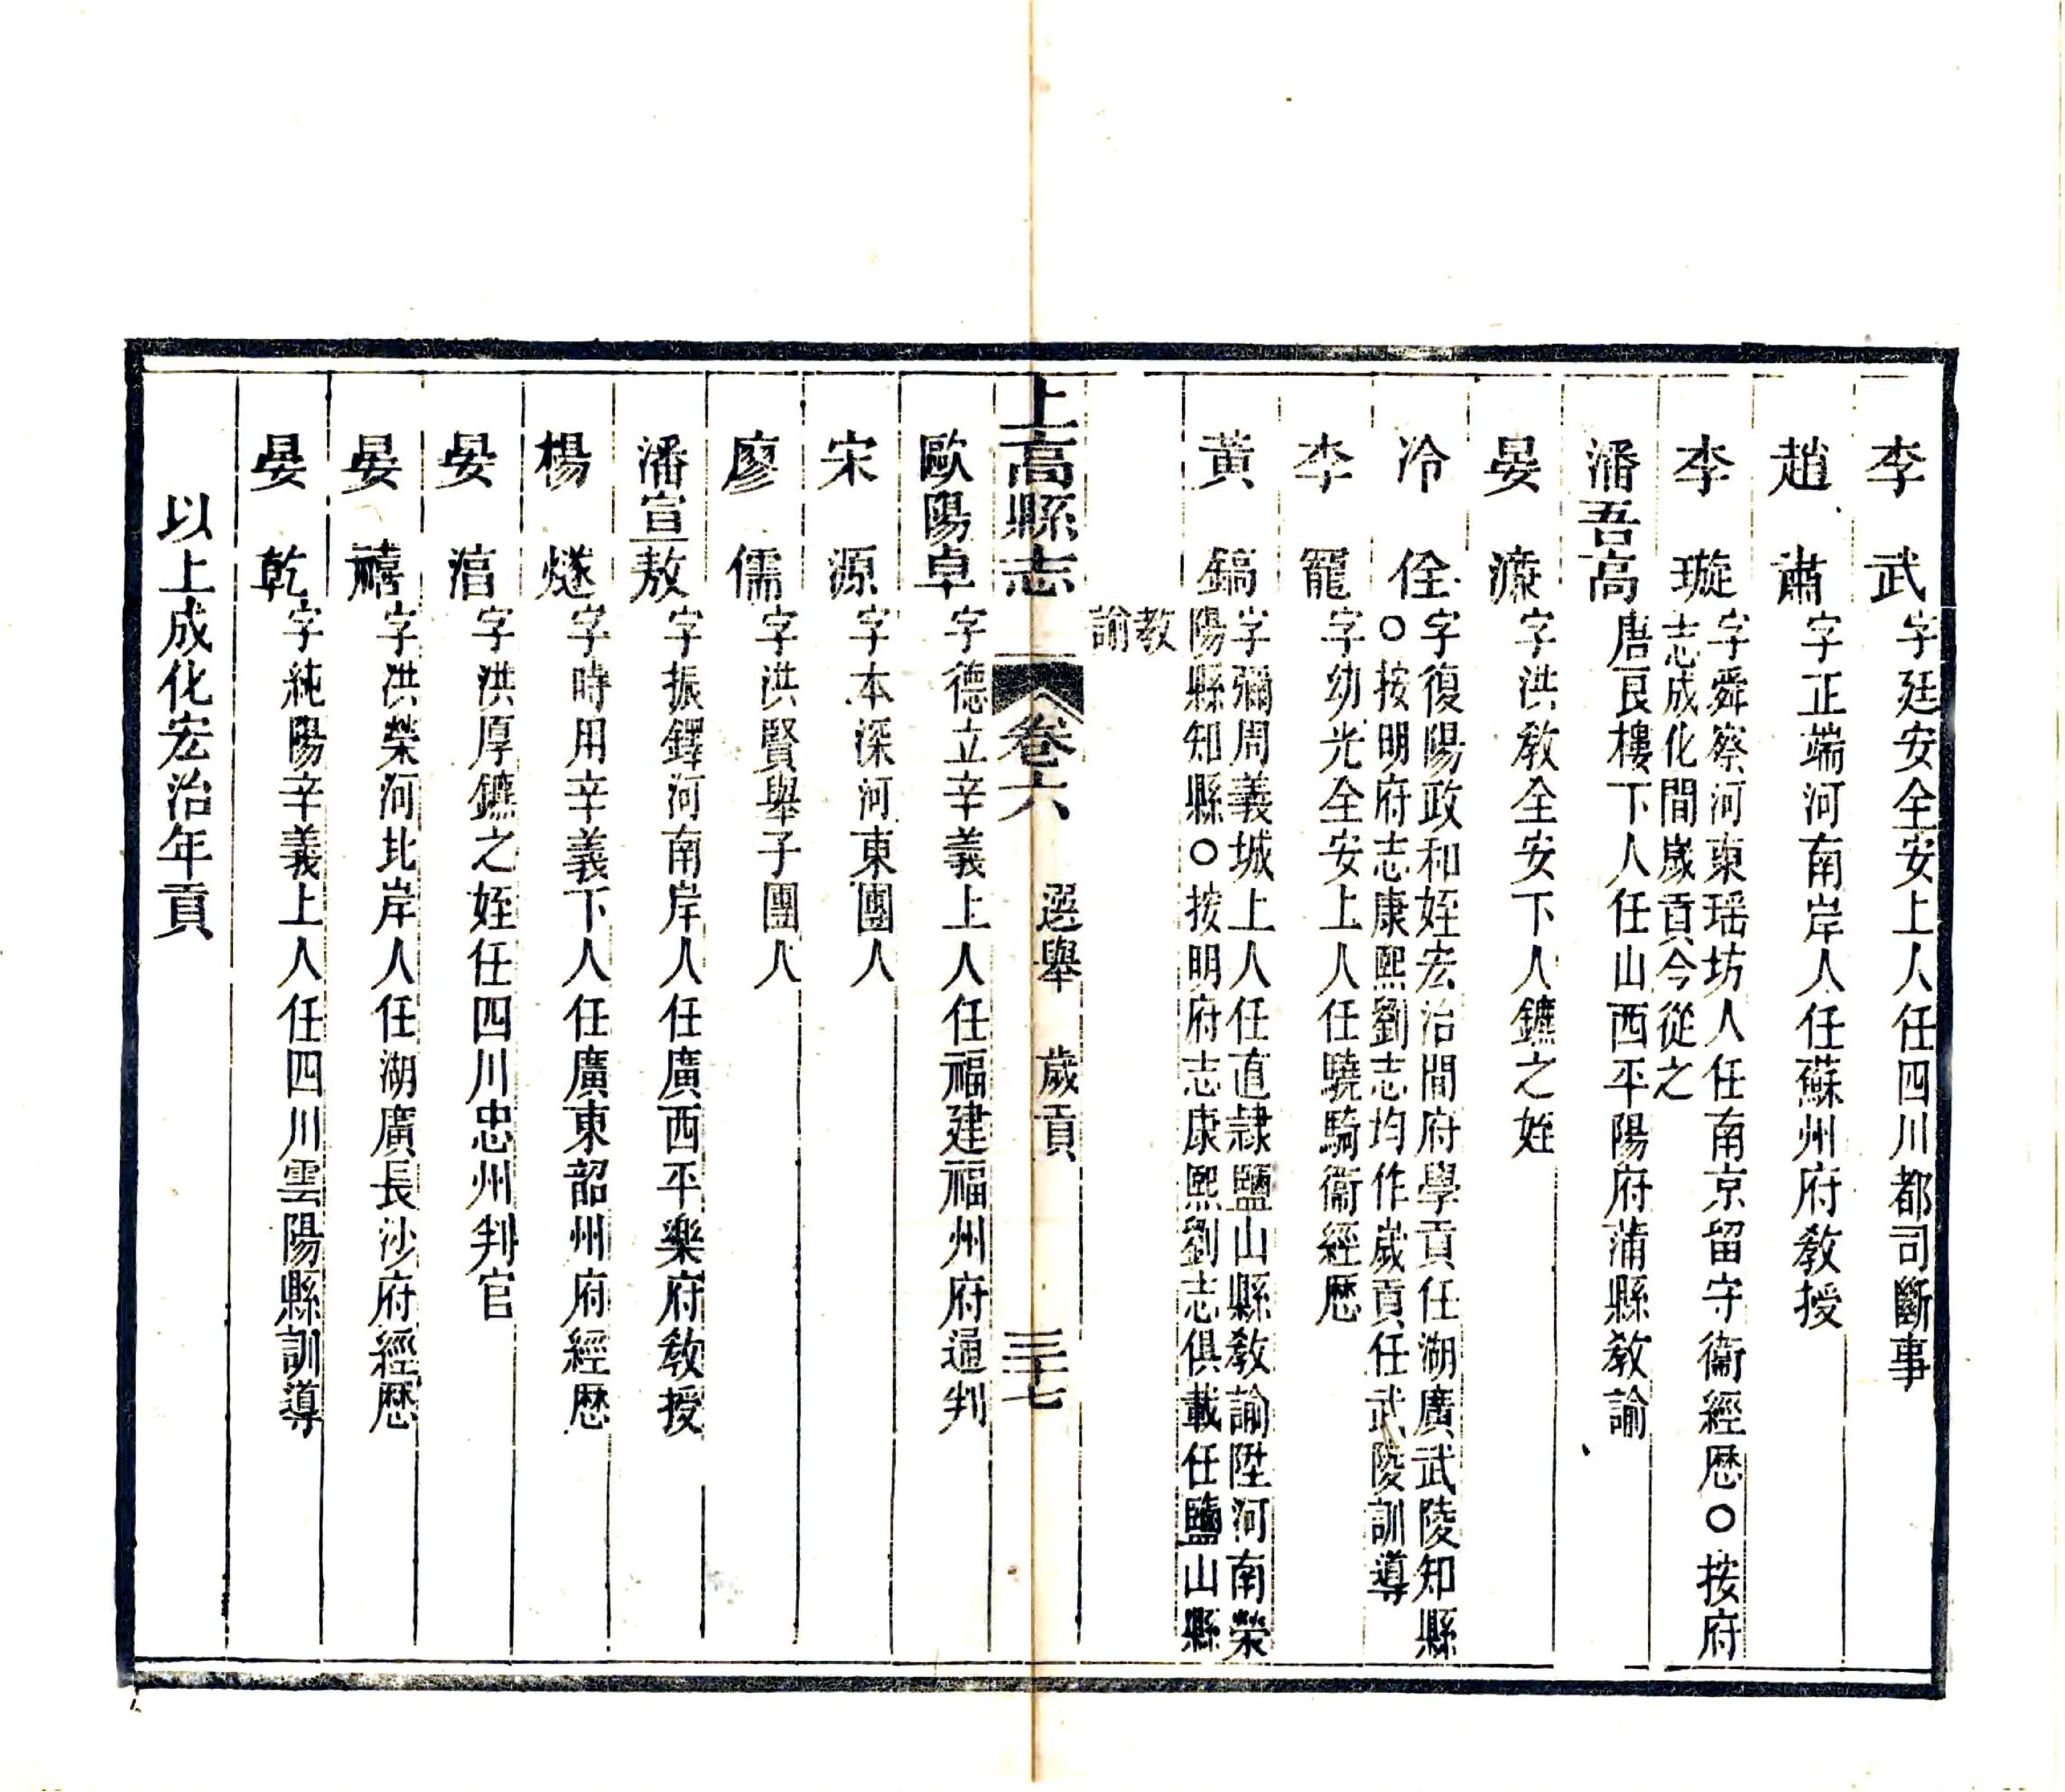 李 武字廷安全安上人任四川都司斷事
趙 肅字正端河南岸人任蘇州府教授
李 璇字舜察河東瑶坊人任南京留守衞經歷○按府
志成化間歲貢今從之
潘吾高唐良樓下人任山西平陽府蒲縣教諭
晏 濂字洪敎全安下人鑣之姪
冷 佺字復陽政和姪宏治間府學貢任湖廣武陵知縣
○按明府志康熙劉志均作歲貢任武陵訓導
李 寵字幼光全安上人任驍騎衞經歷
黃 鎬字彌周義城上人任直隷鹽山縣敎諭陞河南滎
陽縣知縣○按明府志康熙劉志俱載任鹽山縣
教
諭
上高縣志 卷六 選舉 歲貢 三十七
歐陽卓字德立辛義上人任福建福州府通判
宋 源字本深河東團人
廖 儒字洪賢舉子團人
潘宣敖字振鐸河南岸人任廣西平樂府敎授
楊 燧字時用辛義下人任廣東韶州府經歷
晏 涽字洪厚鑣之姪任四川忠州判官
晏 禧字洪榮河北岸人任湖廣長沙府經歷
晏 乾字純陽辛義上人任四川雲陽縣訓導
以上成化宏治年貢